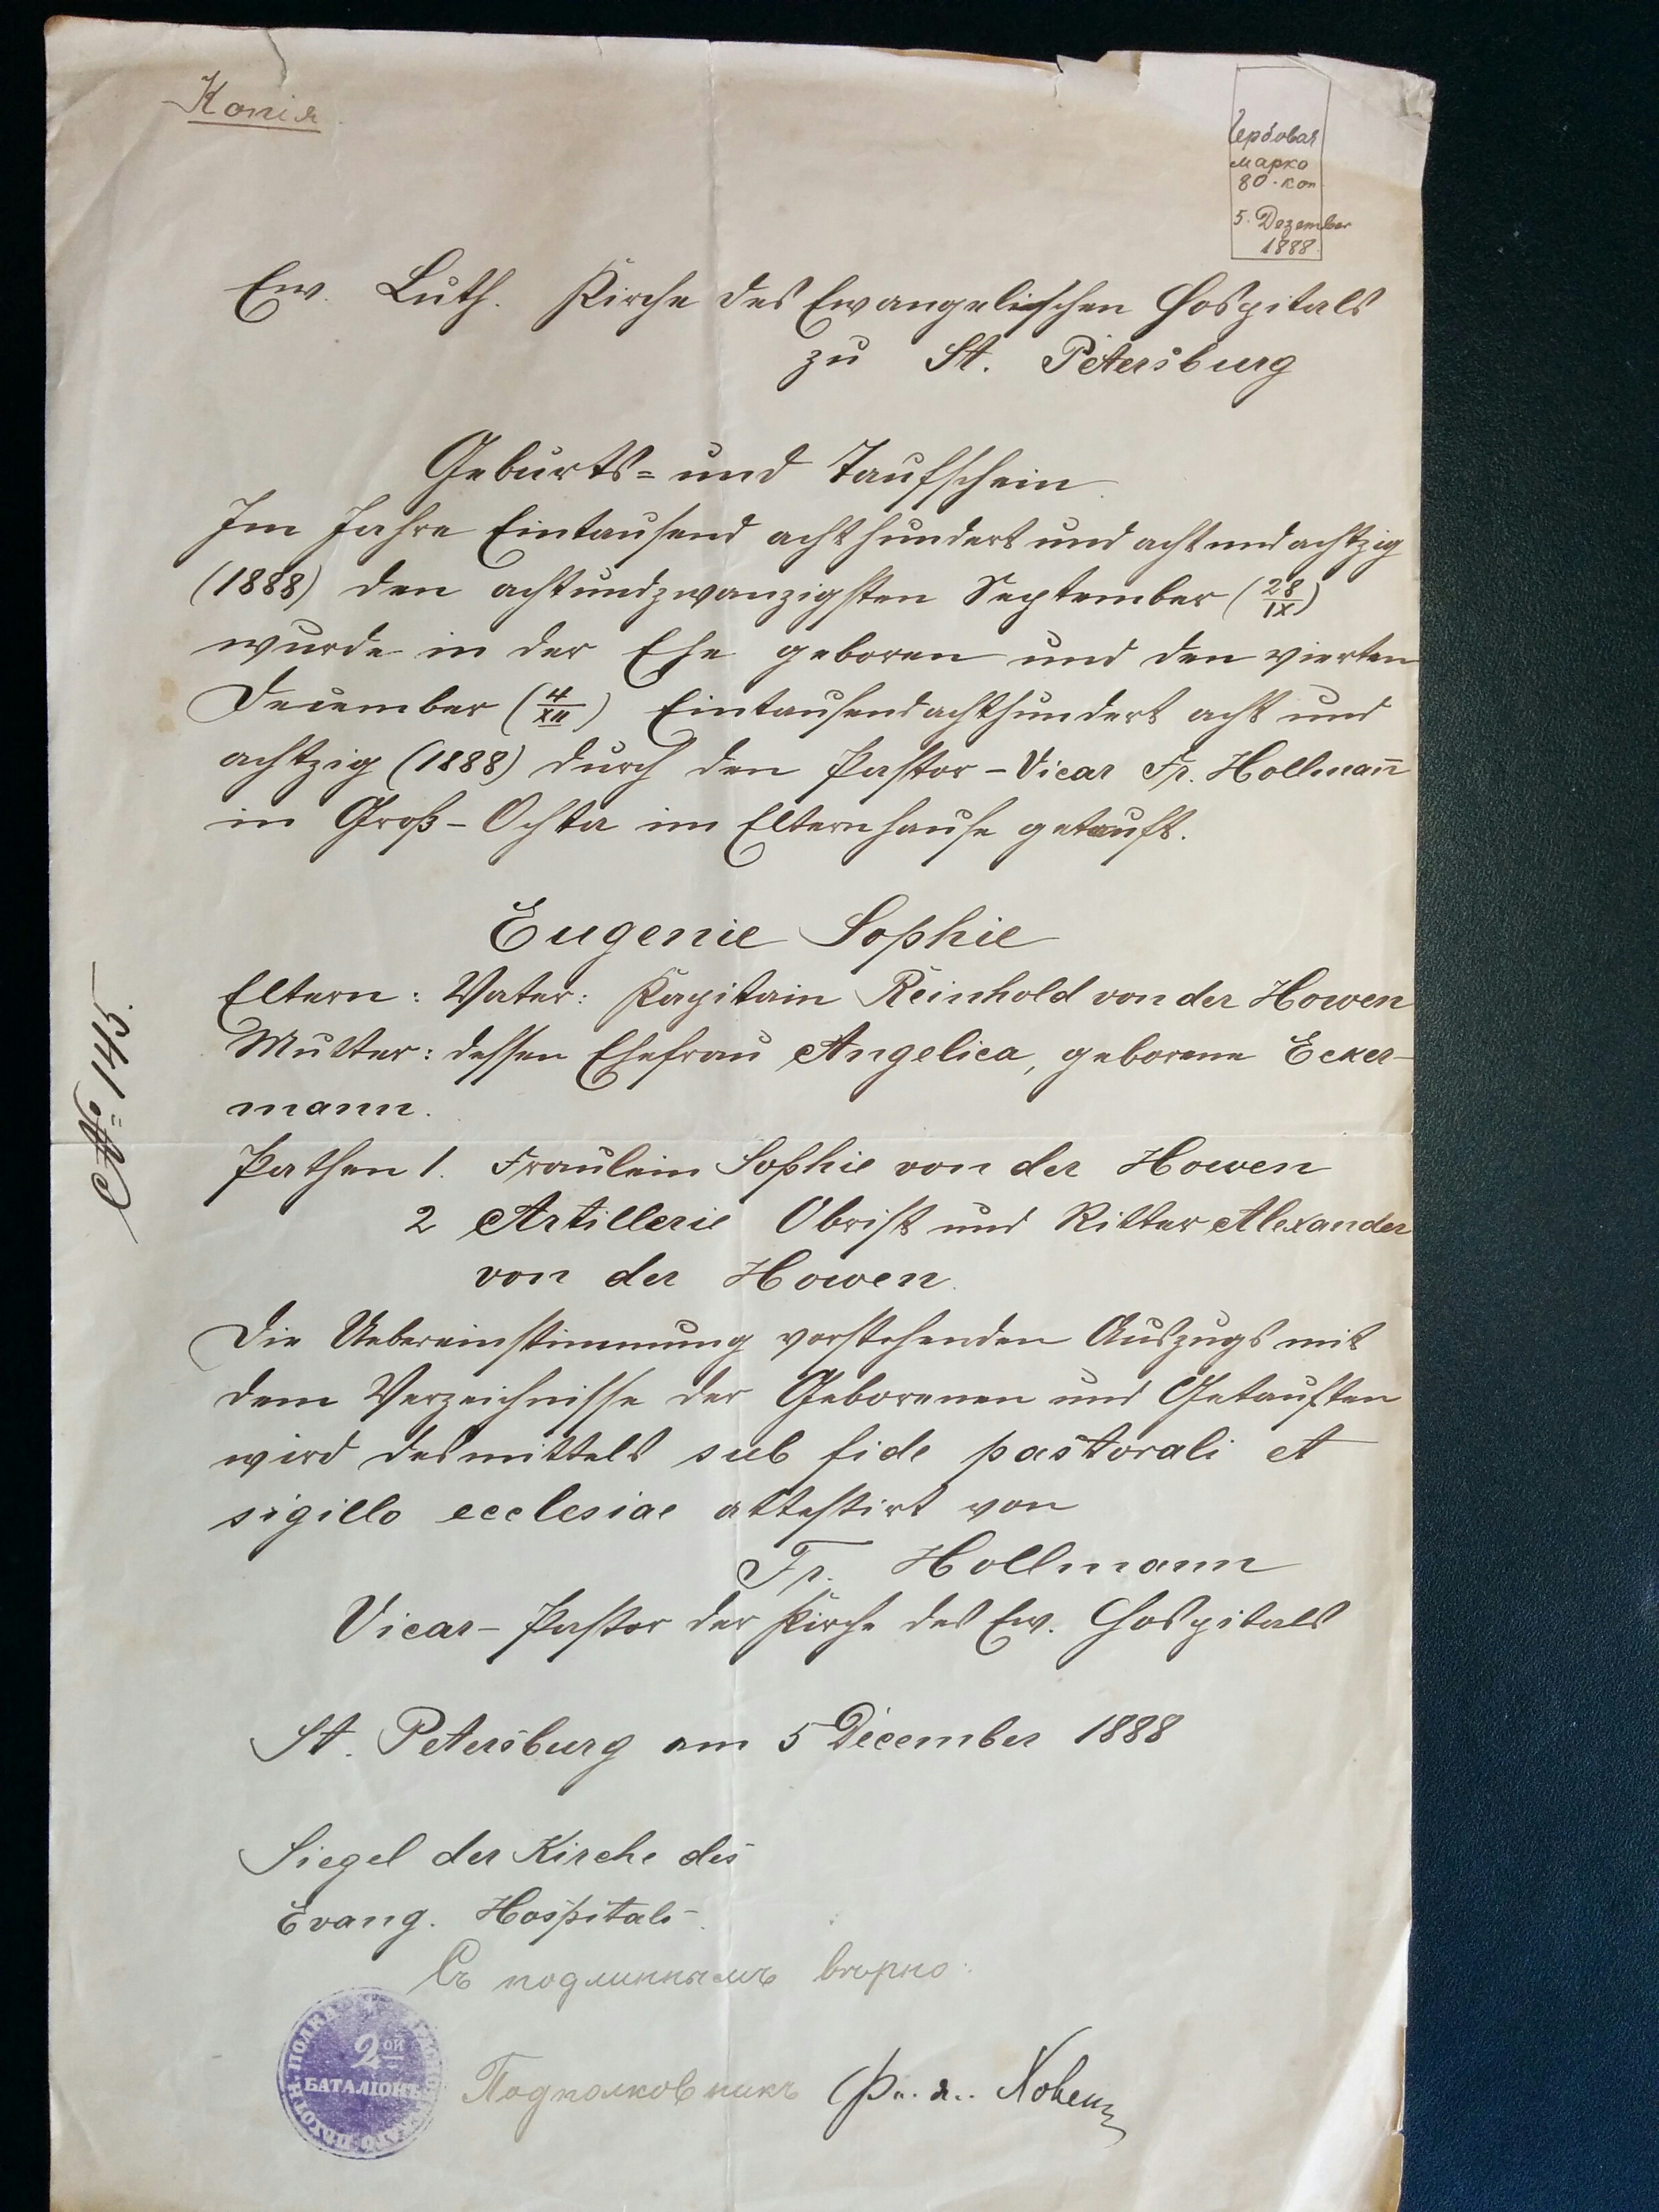 Копія
Гербовая
марка
80 коп
5. Dezember
1888
Ew. Luth. Kirche des Ewangelischen Hospitals
zu St. Petersburg
Geburts= und Taufschein
Im Jahre Eintausend achthundert und acht und achtzig
(1888) den achtundzwanzigsten September (28/IX)
wurde in der Ehe geboren und den vierten
December (4/XII) Eintausendachthundert acht und
achtzig (1888) durch den Pastor-Vicar Fr. Hollmann̄
in Groß-Ochta im Elternhause getauft.
Eugenie Sophie
Eltern: Vater: Kapitain Reinhold von der Howen
Mutter: dessen Ehefrau Angelica, geborene Ecker-
mann.
№ 145.
Pathen 1. Fraulein Sophie von der Howen
2 Artillerie Obrist und Ritter Alexander
von der Howen.
Die Uebereinstimmung vorstehenden Auszugs mit
dem Verzeichnisse der Geborenen und Getauften
wird desmittels sub fide pastorali et
sigillo ecclesiae attestirt von
Fr. Hollmann
Vicar-Pastor der Kirche des Ew. Hospitals
St. Petersburg am 5 December 1888
Siegel der Kirche des
Evang. Hospitals.
Съ подлиннымъ вѣрно:
2ой
БАТАЛІОНЪ
Подполковникъ Фн. д.. Ховенъ